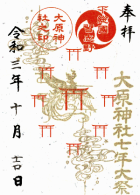 奉拝
大原神
社之印
大原神社七年大祭
令和三年十月
日